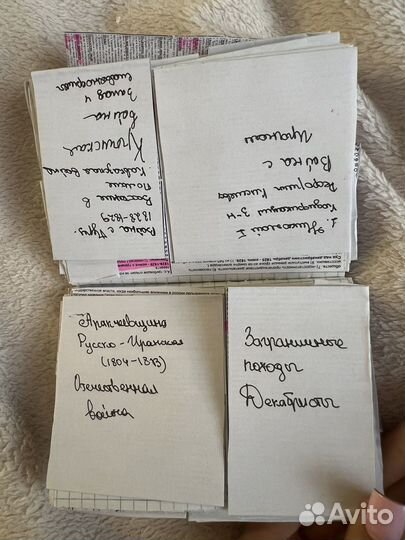 Война с Турц.
1828-1829
Восстание в
Польше
Кавказская война
Крымская
война
Запад. и
славянофилы
1. Николай I
Кодификация з-н
Реформа Киселева
Война с
Ираном
Аракчевщина
Русско-Иранская
(1804-1813)
Отечественная
война
Заграничные
походы
Декабристы
Avito